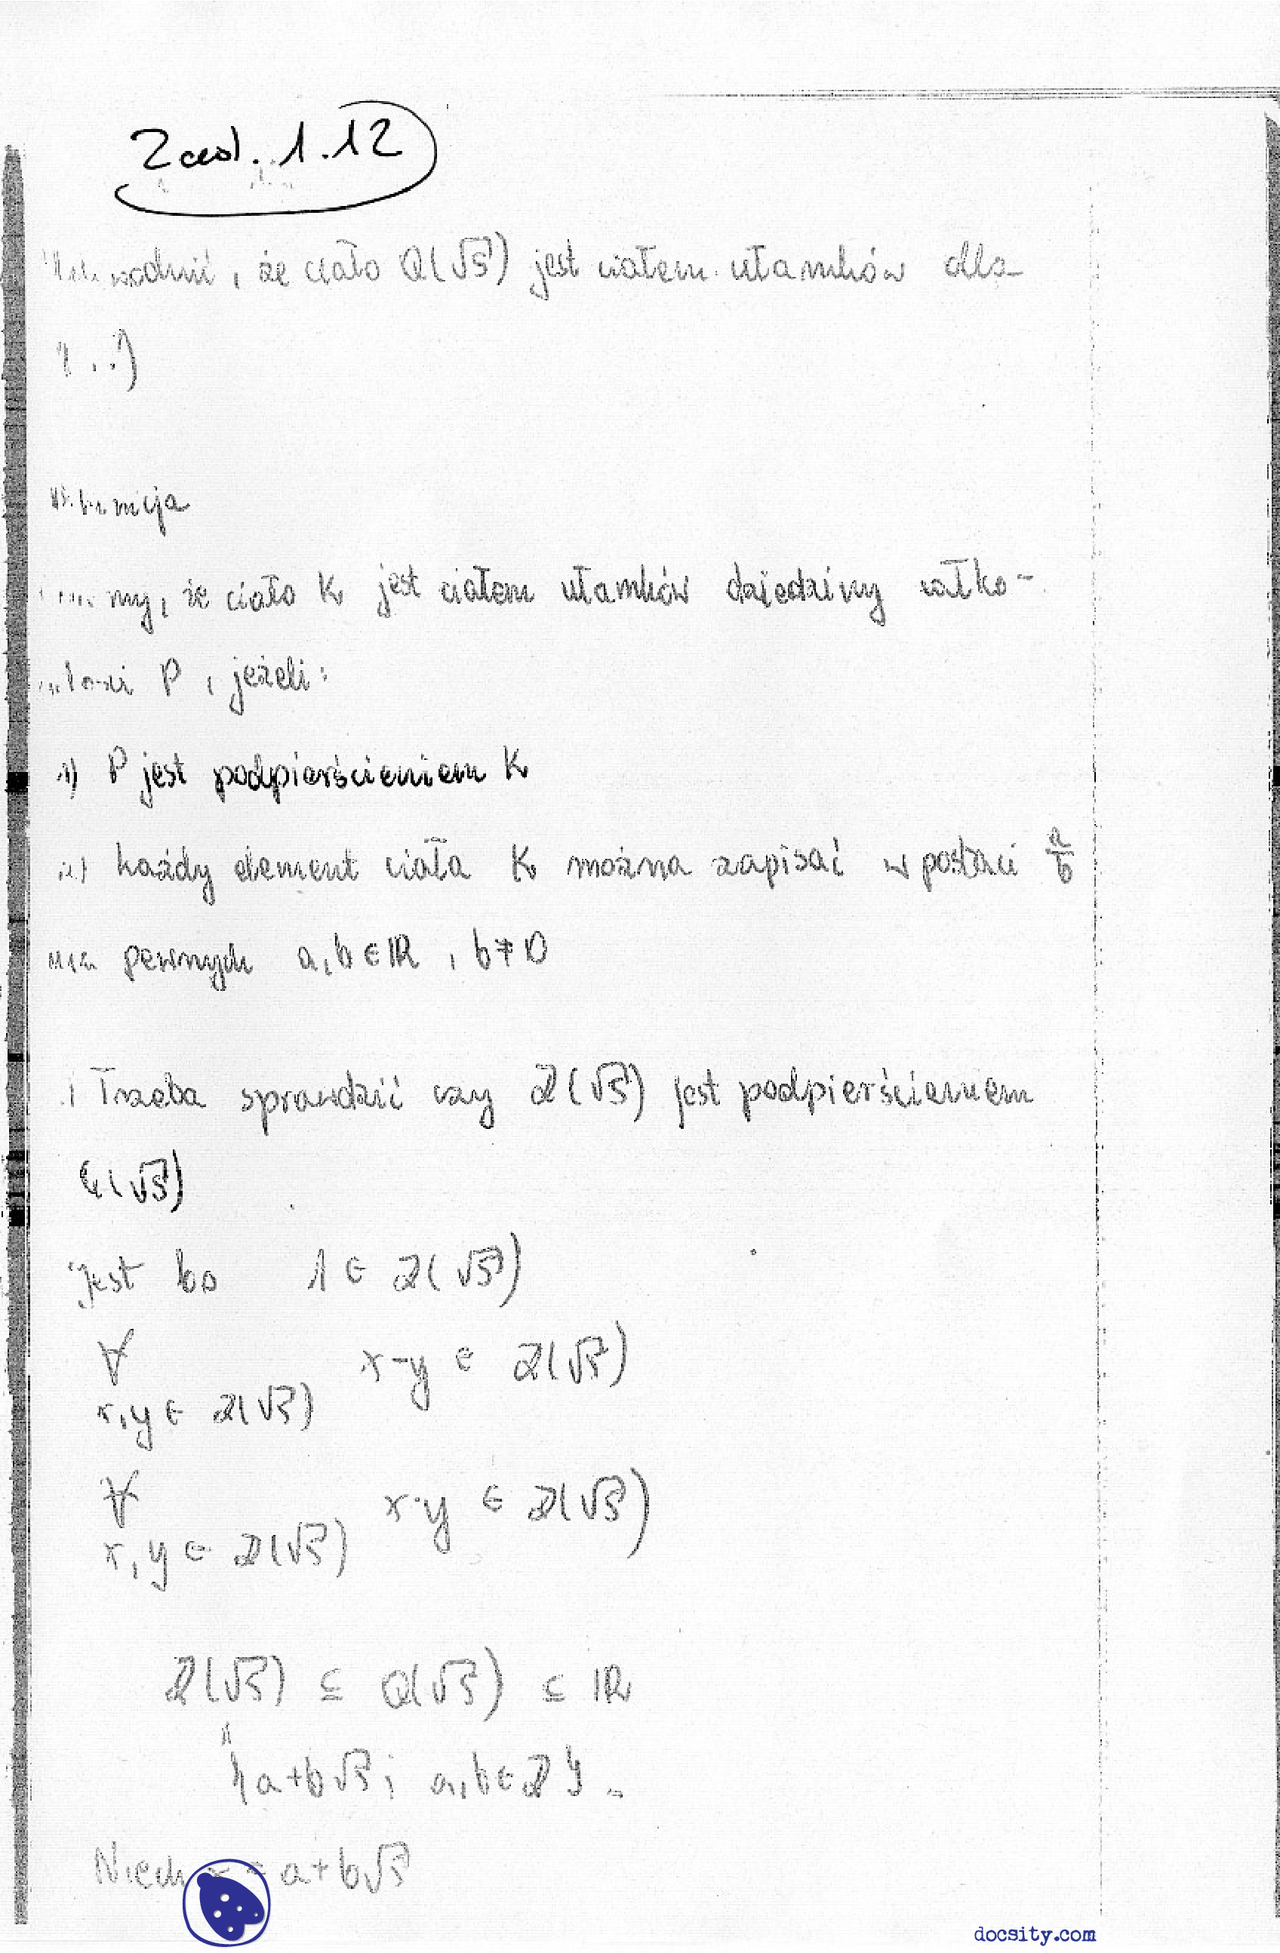 Zad. 1.12
, że ciało Q(√5) jest ciałem ułamków dla
my, że ciało K jest ciałem ułamków dziedziny całko-
P, jeżeli:
1) P jest podpierścieniem K
2) każdy element ciała K można zapisać w postaci a/b
pewnych a,b ∈ ℝ, b ≠ 0
Trzeba sprawdzić czy Z(√5) jest podpierścieniem
Q(√5)
jest bo 1 ∈ Z(√5)
∀ x-y ∈ Z(√5)
x,y ∈ Z(√5)
∀ x·y ∈ Z(√5)
x,y ∈ Z(√5)
Z(√5) ⊆ Q(√5) ⊆ ℝ
{a+b√5; a,b ∈ Z}.
Niech x = a+b√5
docsity.com